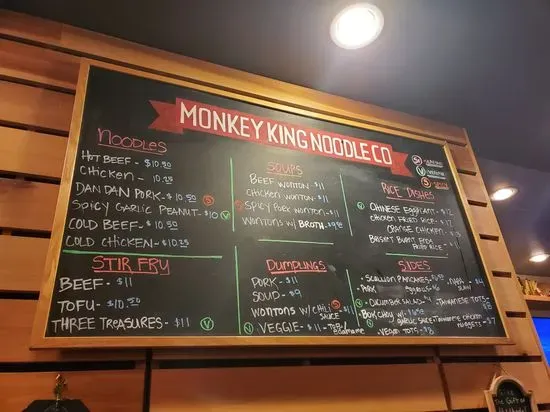 MONKEY KING NOODLE CO
NOODLES
HOT BEEF - $10.50
CHICKEN - 10.25
DAN DAN PORK - $10.50 S
SPICY GARLIC PEANUT - $10 V
COLD BEEF - $10.50
COLD CHICKEN - $10.25
STIR FRY
BEEF - $11
TOFU - $10.50
THREE TREASURES - $11 V
SOUPS
BEEF WONTON - $11
CHICKEN WONTON - $11
SPICY PORK WONTON - $11
WONTONS W/ BROTH
DUMPLINGS
PORK - $11
SOUP - $9
WONTONS W/ CHILI SAUCE S - $11
VEGGIE - $11 - TOFU/EDAMAME
V
S SPICY
RICE DISHES
CHINESE EGGPLANT - $12
CHICKEN FRIED RICE
ORANGE CHICKEN
BRISKET BURNT ENDS
FRIED RICE
SIDES
SCALLION PANCAKES
NAPA SLAW - $4
PORK EGGROLLS
CUCUMBER SALAD
TAIWANESE TOTS
BOK CHOY W/
GARLIC SAUCE
TAIWANESE CHICKEN NUGGETS - $7
VEGAN TOTS - $8
The Gift of